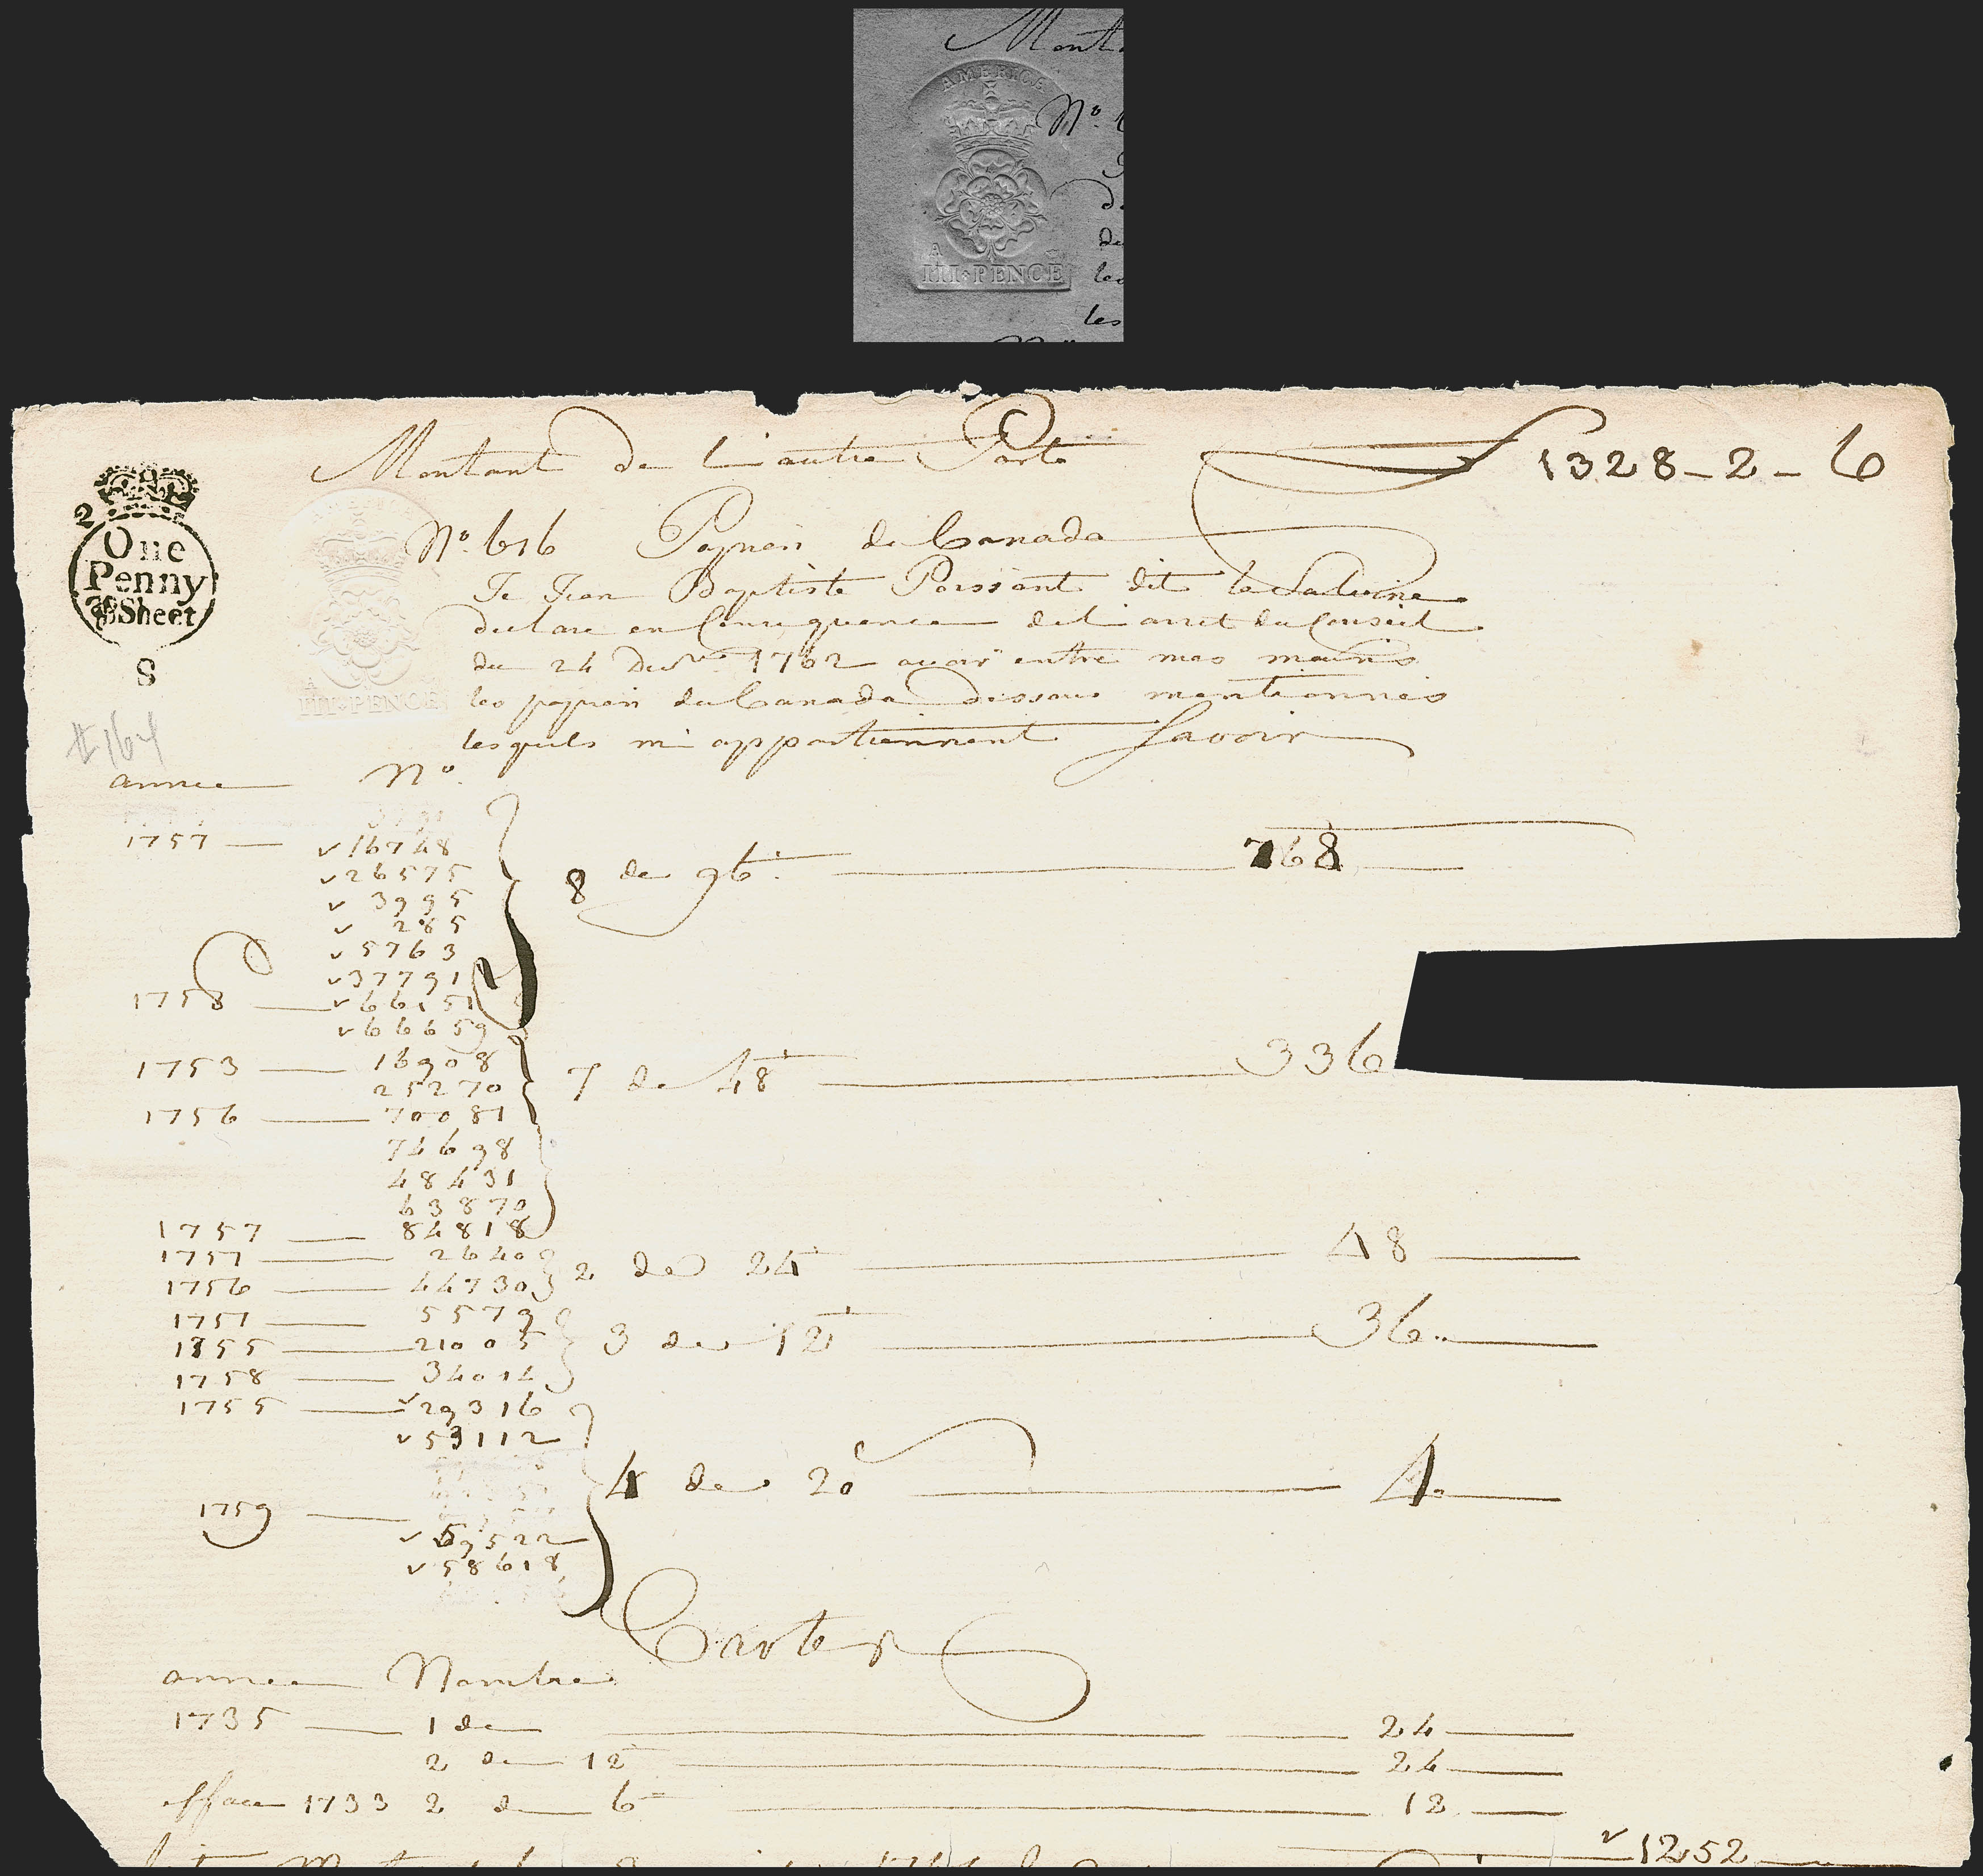 Mont
AMERICA
No. 6
A
III·PENCE
les
Montant de l'autre Parte 1328-2-6
2
One
Penny
Sheet
S
III·PENCE
No. 616 Papier de Canada
Je Jean Baptiste Poissant dit la Saline
declare en Consequence de l arret du Conseil
du 24 Decbre 1762 avoir entre mes mains
les papier du Canada dessous mentionnés
lesquels m'appartiennent Savoir
#164
année No.
1757 16748
26575
3995
285
5763
37791
1758 66151
66659
8 de 96 768
1753 16908
25270
1756 70081
74698
48431
63870
1757 84818
7 de 48 336
1757 2640
1756 44730
2 de 24 48
1757 5579
1755 21005
1758 34014
3 de 12 36
1755 29316
53112
1759
69522
58618
4 de 20 4
Cartes
année Nombre
1735 1 de 24
2 de 12 24
efface 1733 2 de 6 12
1252